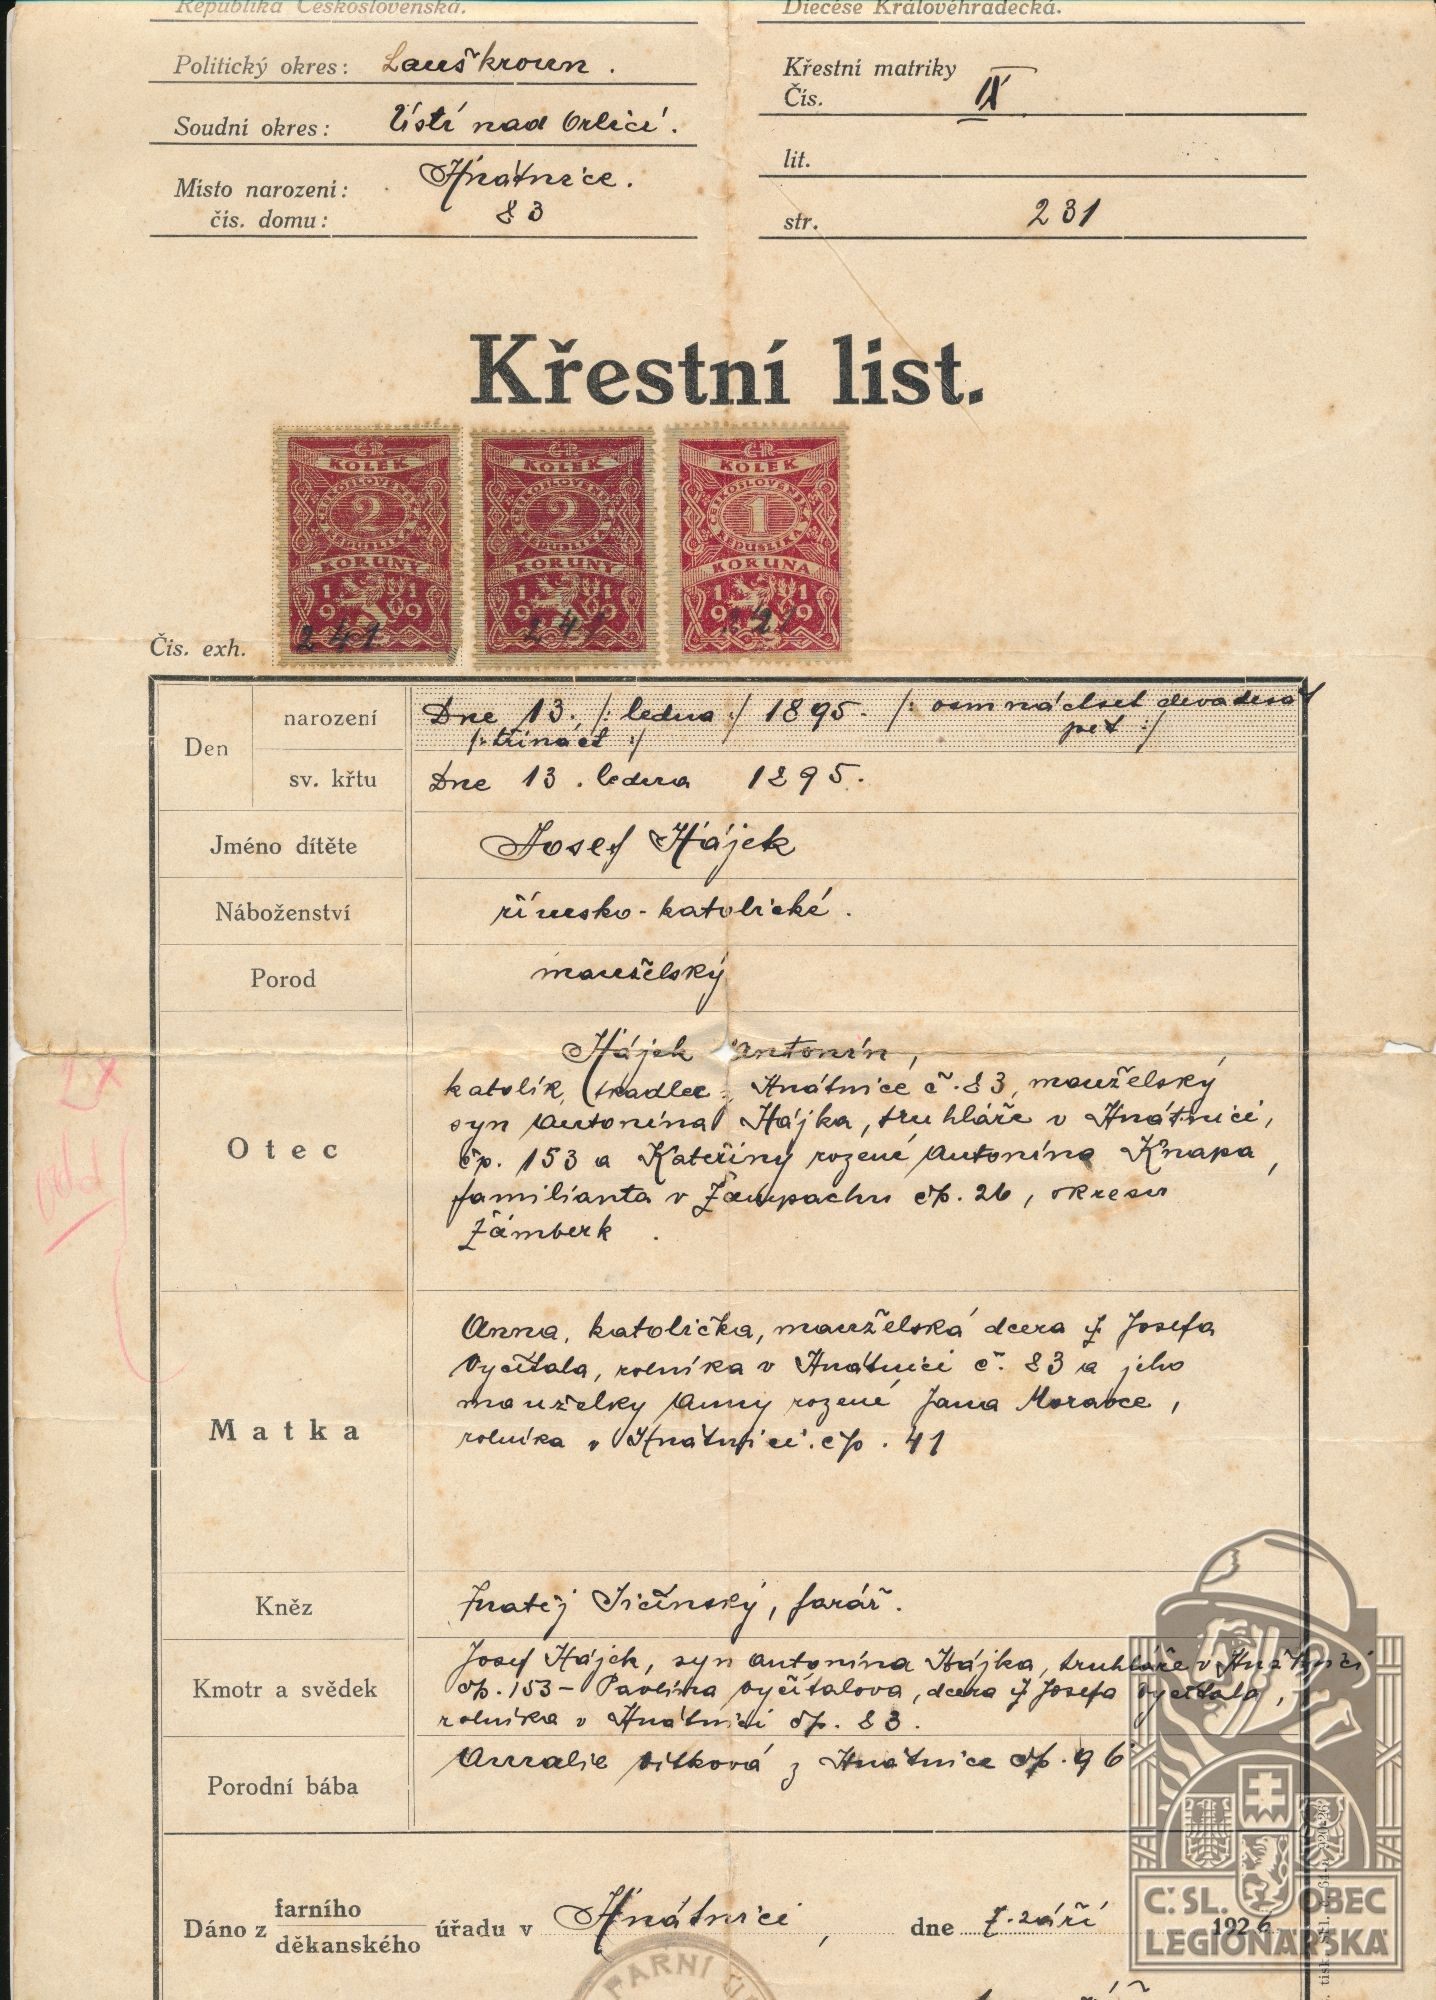 Republika Československá.
Diecése Královéhradecká.
Politický okres: Lanškroun.
Křestní matriky
Čís. IX
Soudní okres: Ústí nad Orlicí.
lit.
Místo narození: Hnátnice.
čís. domu: 83
str. 231
Křestní list.
ČR
KOLEK
ČESKOSLOVENSKÁ
2
REPUBLIKA
KORUNY
1919
241
ČR
KOLEK
ČESKOSLOVENSKÁ
2
REPUBLIKA
KORUNY
1919
241
ČR
KOLEK
ČESKOSLOVENSKÁ
1
REPUBLIKA
KORUNA
1919
Čís. exh.
Den
narození Dne 13. /: ledna :/ 1895. /: osmnáctset devadesát
/: třináct :/ pět :/
sv. křtu Dne 13. ledna 1895.
Jméno dítěte Josef Hájek
Náboženství římsko-katolické.
Porod manželský
2x
Otec
Hájek Antonín,
katolík, tkadlec, Hnátnice č. 83, manželský
syn Antonína Hájka, truhláře v Hnátnici,
čp. 153 a Kateřiny rozené Antonína Knapa,
familianta v Žampachu čp. 26, okresu
Žamberk.
Matka
Anna, katolička, manželská dcera Josefa
Vyčítala, rolníka v Hnátnici č. 83 a jeho
manželky Anny rozené Jana Moravce,
rolníka v Hnátnici čp. 41
Kněz Matěj Jičínský, farář.
Kmotr a svědek
Josef Hájek, syn Antonína Hájka, truhláře v Hnátnici
čp. 153 - Pavlína Vyčítalova, dcera Josefa Vyčítala,
rolníka v Hnátnici čp. 83.
Porodní bába Amalie Vítková z Hnátnice čp. 96
Dáno z farního
děkanského úřadu v Hnátnici, dne 7. září 1926
FARNÍ ÚŘ
Č.SL. OBEC
LEGIONÁŘSKÁ